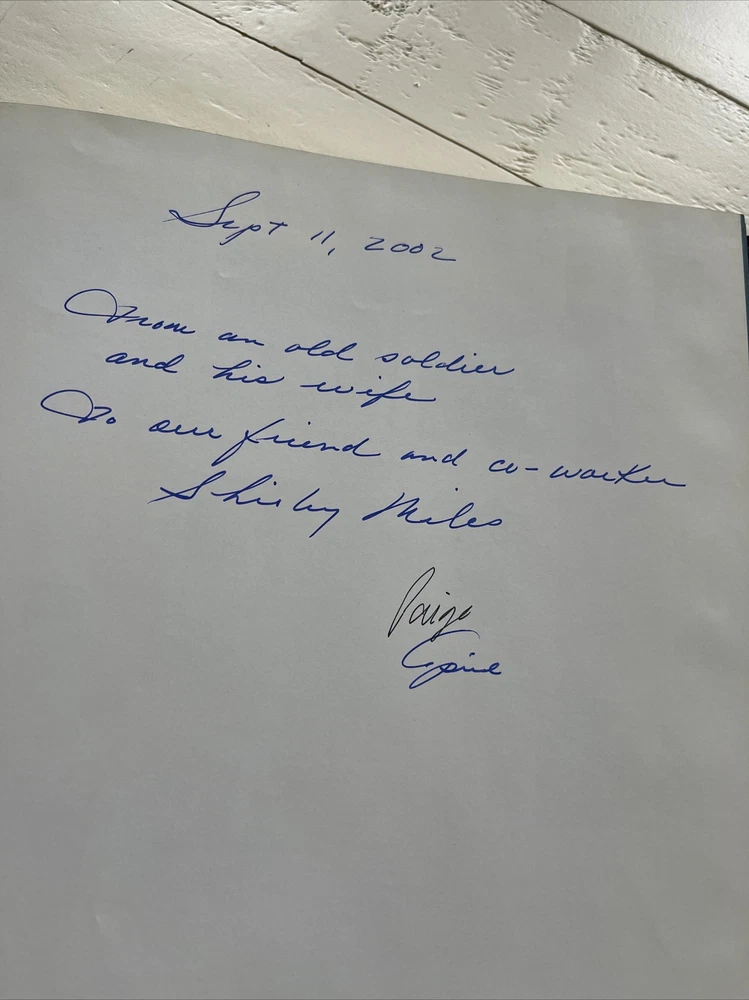 Sept 11, 2002
From an old soldier
and his wife
To our friend and co-worker
Shirley Miles
Paige